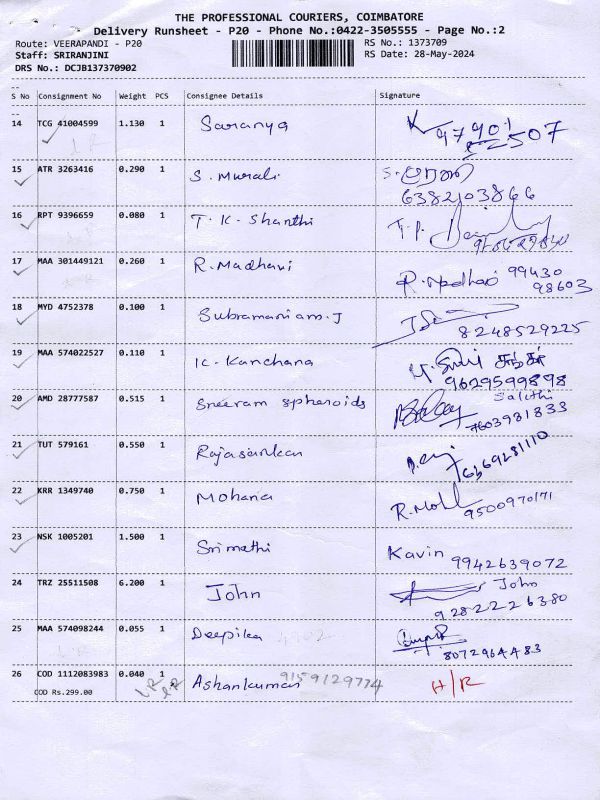 THE PROFESSIONAL COURIERS, COIMBATORE
Delivery Runsheet - P20 - Phone No.:0422-3505555 - Page No.:2
Route: VEERAPANDI - P20 RS No.: 1373709
Staff: SRIRANJINI RS Date: 28-May-2024
DRS No.: DCJB137370902
S No Consignment No Weight PCS Consignee Details Signature
14 TCG 41004599 1.130 1 Saranya
15 ATR 3263416 0.290 1 S. Murali S. முரளி
6382103866
16 RPT 9396659 0.080 1 T. K. Shanthi
17 MAA 301449121 0.260 1 R. Madhavi 99430
98603
18 MYD 4752378 0.100 1 Subramaniam. J
8248529225
19 MAA 574022527 0.110 1 K. Kanchana
9629599898
20 AMD 28777587 0.515 1 Sreeram spheroids
7603981833
21 TUT 579161 0.550 1 Rajasankar
22 KRR 1349740 0.750 1 Mohana
9500970171
23 NSK 1005201 1.500 1 Srimathi Kavin
9942639072
24 TRZ 25511508 6.200 1 John John
9282226380
25 MAA 574098244 0.055 1 Deepika
8072964483
26 COD 1112083983 0.040 1 Ashankumar 9159129774 H/R
COD Rs.299.00